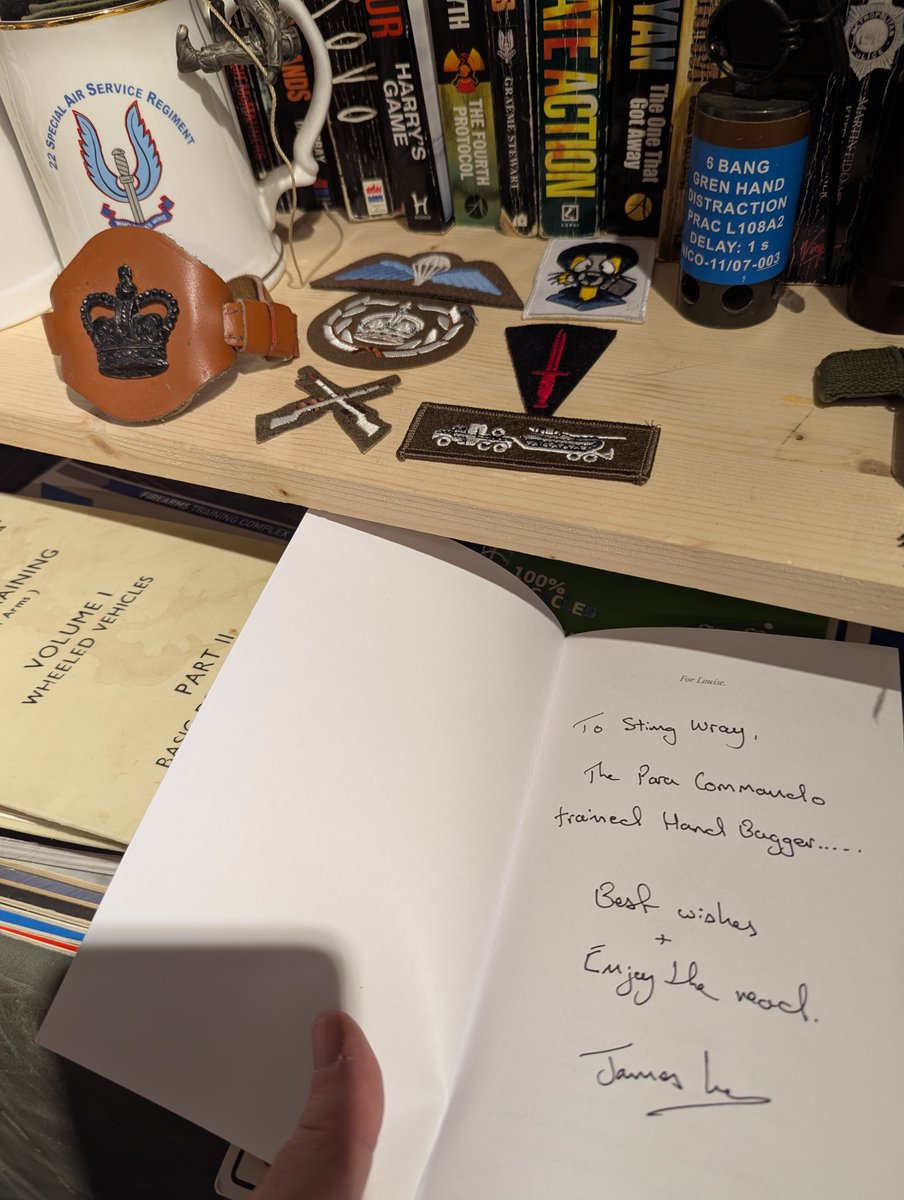 22 SPECIAL AIR SERVICE REGIMENT
WHO DARES WINS
HARRY'S
GAME
THE FOURTH
PROTOCOL
GRAEME STEWART
ATE ACTION
RYAN
The One That
Got Away
METROPOLITAN
6 BANG
GREN HAND
DISTRACTION
PRAC L108A2
DELAY: 1 s
NICO-11/07-003
FIREARMS TRAINING COMPLEX
AINING
Arms )
VOLUME I
WHEELED VEHICLES
PART II
BASIC
100%
CLED
For Louise.
To Sting Wray,
The Para Commando
trained Hand Bagger.....
Best wishes
+
Enjoy the read.
James